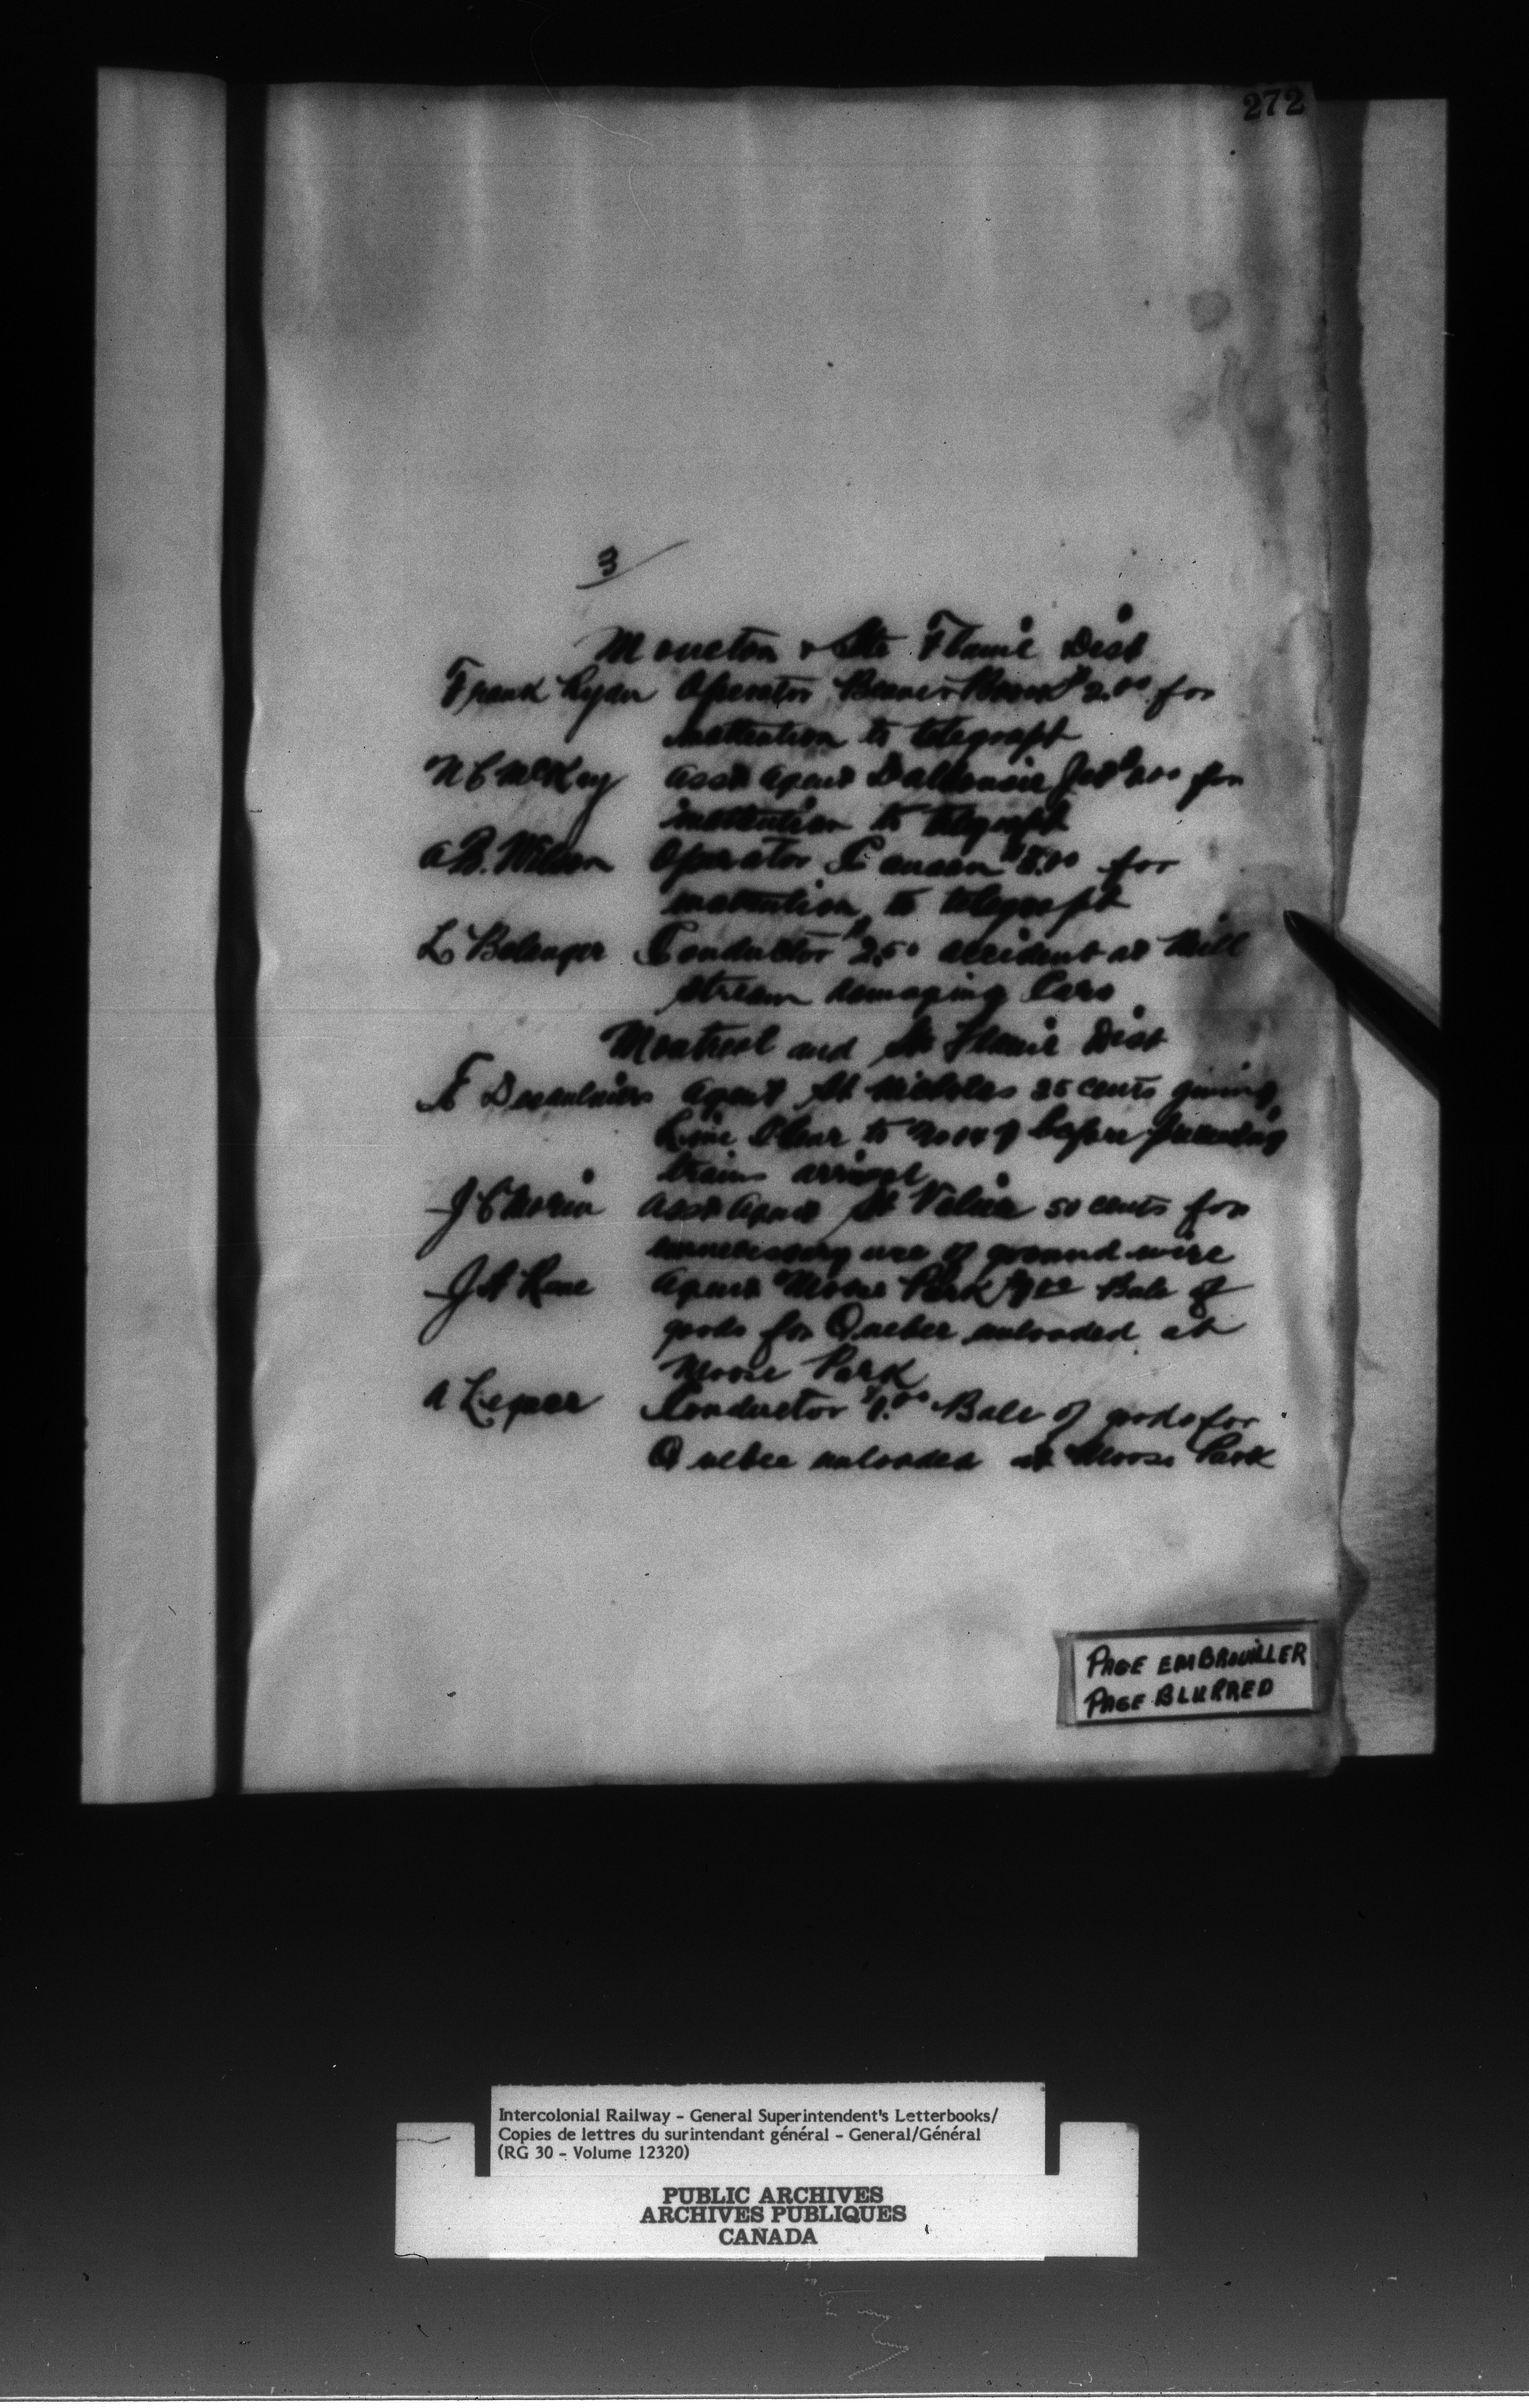 272
3
Moncton & Ste Flavie Dist
Frank Ryan Operator Beaver Brook $2.00 for
inattention to telegraph
N C McKay Asst Agent Dalhousie Jct $2.00 for
inattention to telegraph
A B. Wilson Operator Canaan $5.00 for
inattention to telegraph
L Belanger Conductor $2.50 accident at Mill
stream damaging Cars
Montreal and St Flavie Dist
F Desaulniers Agent St Nicholas 25 cents giving
Line Clear to No before preceding
trains arrival
J C Morin Asst Agent St Valier 50 cents for
unnecessary use of ground wire
J A Rane Agent Moose Park Bale of
goods for Quebec unloaded at
Moose Park
A Conductor $1.00 Bale of goods for
Quebec unloaded at Moose Park
PAGE EMBROUILLER
PAGE BLURRED
Intercolonial Railway - General Superintendent's Letterbooks/
Copies de lettres du surintendant général - General/Général
(RG 30 - Volume 12320)
PUBLIC ARCHIVES
ARCHIVES PUBLIQUES
CANADA